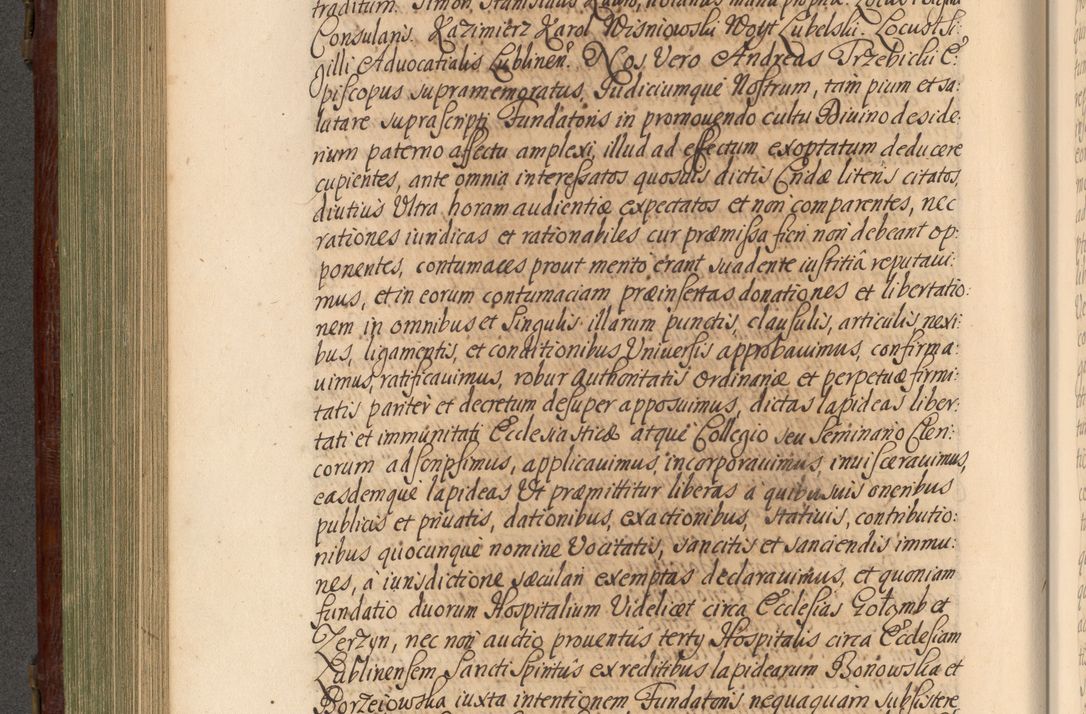 traditum. Simon, Stanislaus manu propria.
Consularis. Kazimierz Karol Wisniowski Woyt Lubelski. Locus Si:
gilli Advocatialis Lublinen. Nos Vero Andreas Trzebicki E:
piscopus supramemoratus, Iudiciumque Nostrum, tam pium et sa:
lutare suprascripti Fundatoris in promovendo cultu Divino deside:
rium paterno affectu amplexi, illud ad effectum exoptatum deducere
cupientes, ante omnia interessatos quosvis dictis Cridæ literis citatos,
diutius Ultra horam audientiæ expectatos et non comparentes, nec
rationes iuridicas et rationabiles cur præmissa fieri non debeant op:
ponentes, contumaces prout merito erant suadente iustitiâ reputavi:
mus, et in eorum contumaciam præinsertas donationes et libertatio:
nem in omnibus et singulis illarum punctis, clausulis, articulis nexi:
bus, ligamentis, et conditionibus Universis approbavimus, confirma:
vimus, ratificavimus, robur authoritatis ordinariæ et perpetuæ firmi:
tatis pariter et decretum desuper apposuimus, dictas lapideas liber:
tati et immunitati Ecclesiasticæ atque Collegio seu Seminario Cleri:
corum adscripsimus, applicavimus, incorporavimus, invisceravimus,
easdemque lapideas Ut præmittitur liberas a quibusvis oneribus
publicis et privatis, dationibus, exactionibus, stativis, contributio:
nibus quocunque nomine Vocitatis, sancitis et sanciendis immu:
nes, a iurisdictione sæculari exemptas declaravimus, et quoniam
fundatio duorum Hospitalium Videlicet circa Ecclesias Golomb et
Zerzyn, nec non auctio proventus tertÿ Hospitalis circa Ecclesiam
Lublinensem Sancti Spiritûs ex reditibus lapidearum Bonowska et
Borzeiowska iuxta intentionem Fundatoris nequaquam subsistere